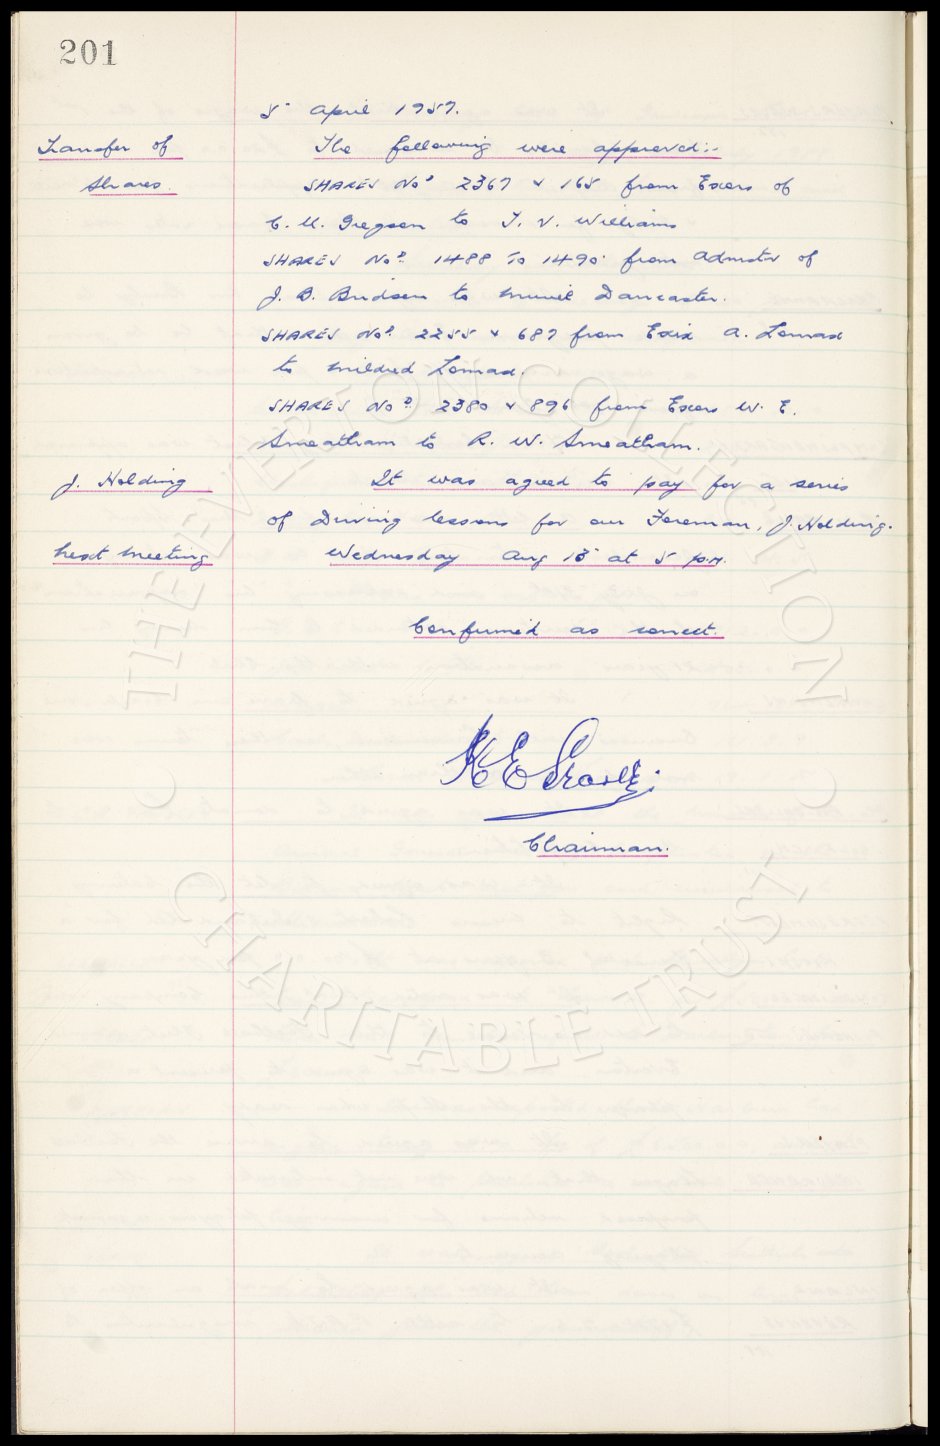 201
5 April 1957.
Transfer of
Shares.
The following were approved:-
SHARES Nos 2367 & 165 from Exors of
C. M. Gregson to T. V. Williams
SHARES Nos 1488 To 1490 from Admstr of
J. B. Bridson to Muriel Dancaster.
SHARES Nos 2255 & 687 from Exix A. Lomax
to Mildred Lomax.
SHARES Nos 2380 & 896 from Exors W. E.
Smeatham to R. W. Smeatham.
J. Holding
It was agreed to pay for a series
of Driving lessons for our Foreman, J. Holding.
Next Meeting
Wednesday Aug at 5 p.m.
Confirmed as correct.
Chairman.
© THE EVERTON COLLECTION ©
CHARITABLE TRUST